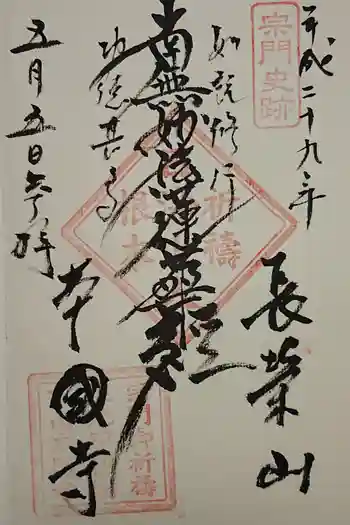 宗門史跡
平成二十九年
長榮山
如説修行
南無妙法蓮華經
功徳甚多
五月五日参拝
本國寺
祈禱
根本
宗門御祈禱